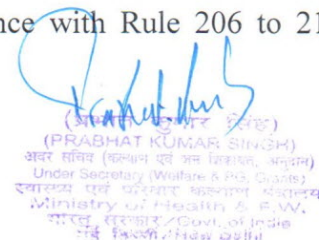 nce with Rule 206 to 21
(प्रभात कुमार सिंह)
(PRABHAT KUMAR SINGH)
अवर सचिव (कल्याण एवं जन शिकायत, अनुदान)
Under Secretary (Welfare & PG, Grants)
स्वास्थ्य एवं परिवार कल्याण मंत्रालय
Ministry of Health & F.W.
भारत सरकार/Govt. of India
नई दिल्ली/New Delhi